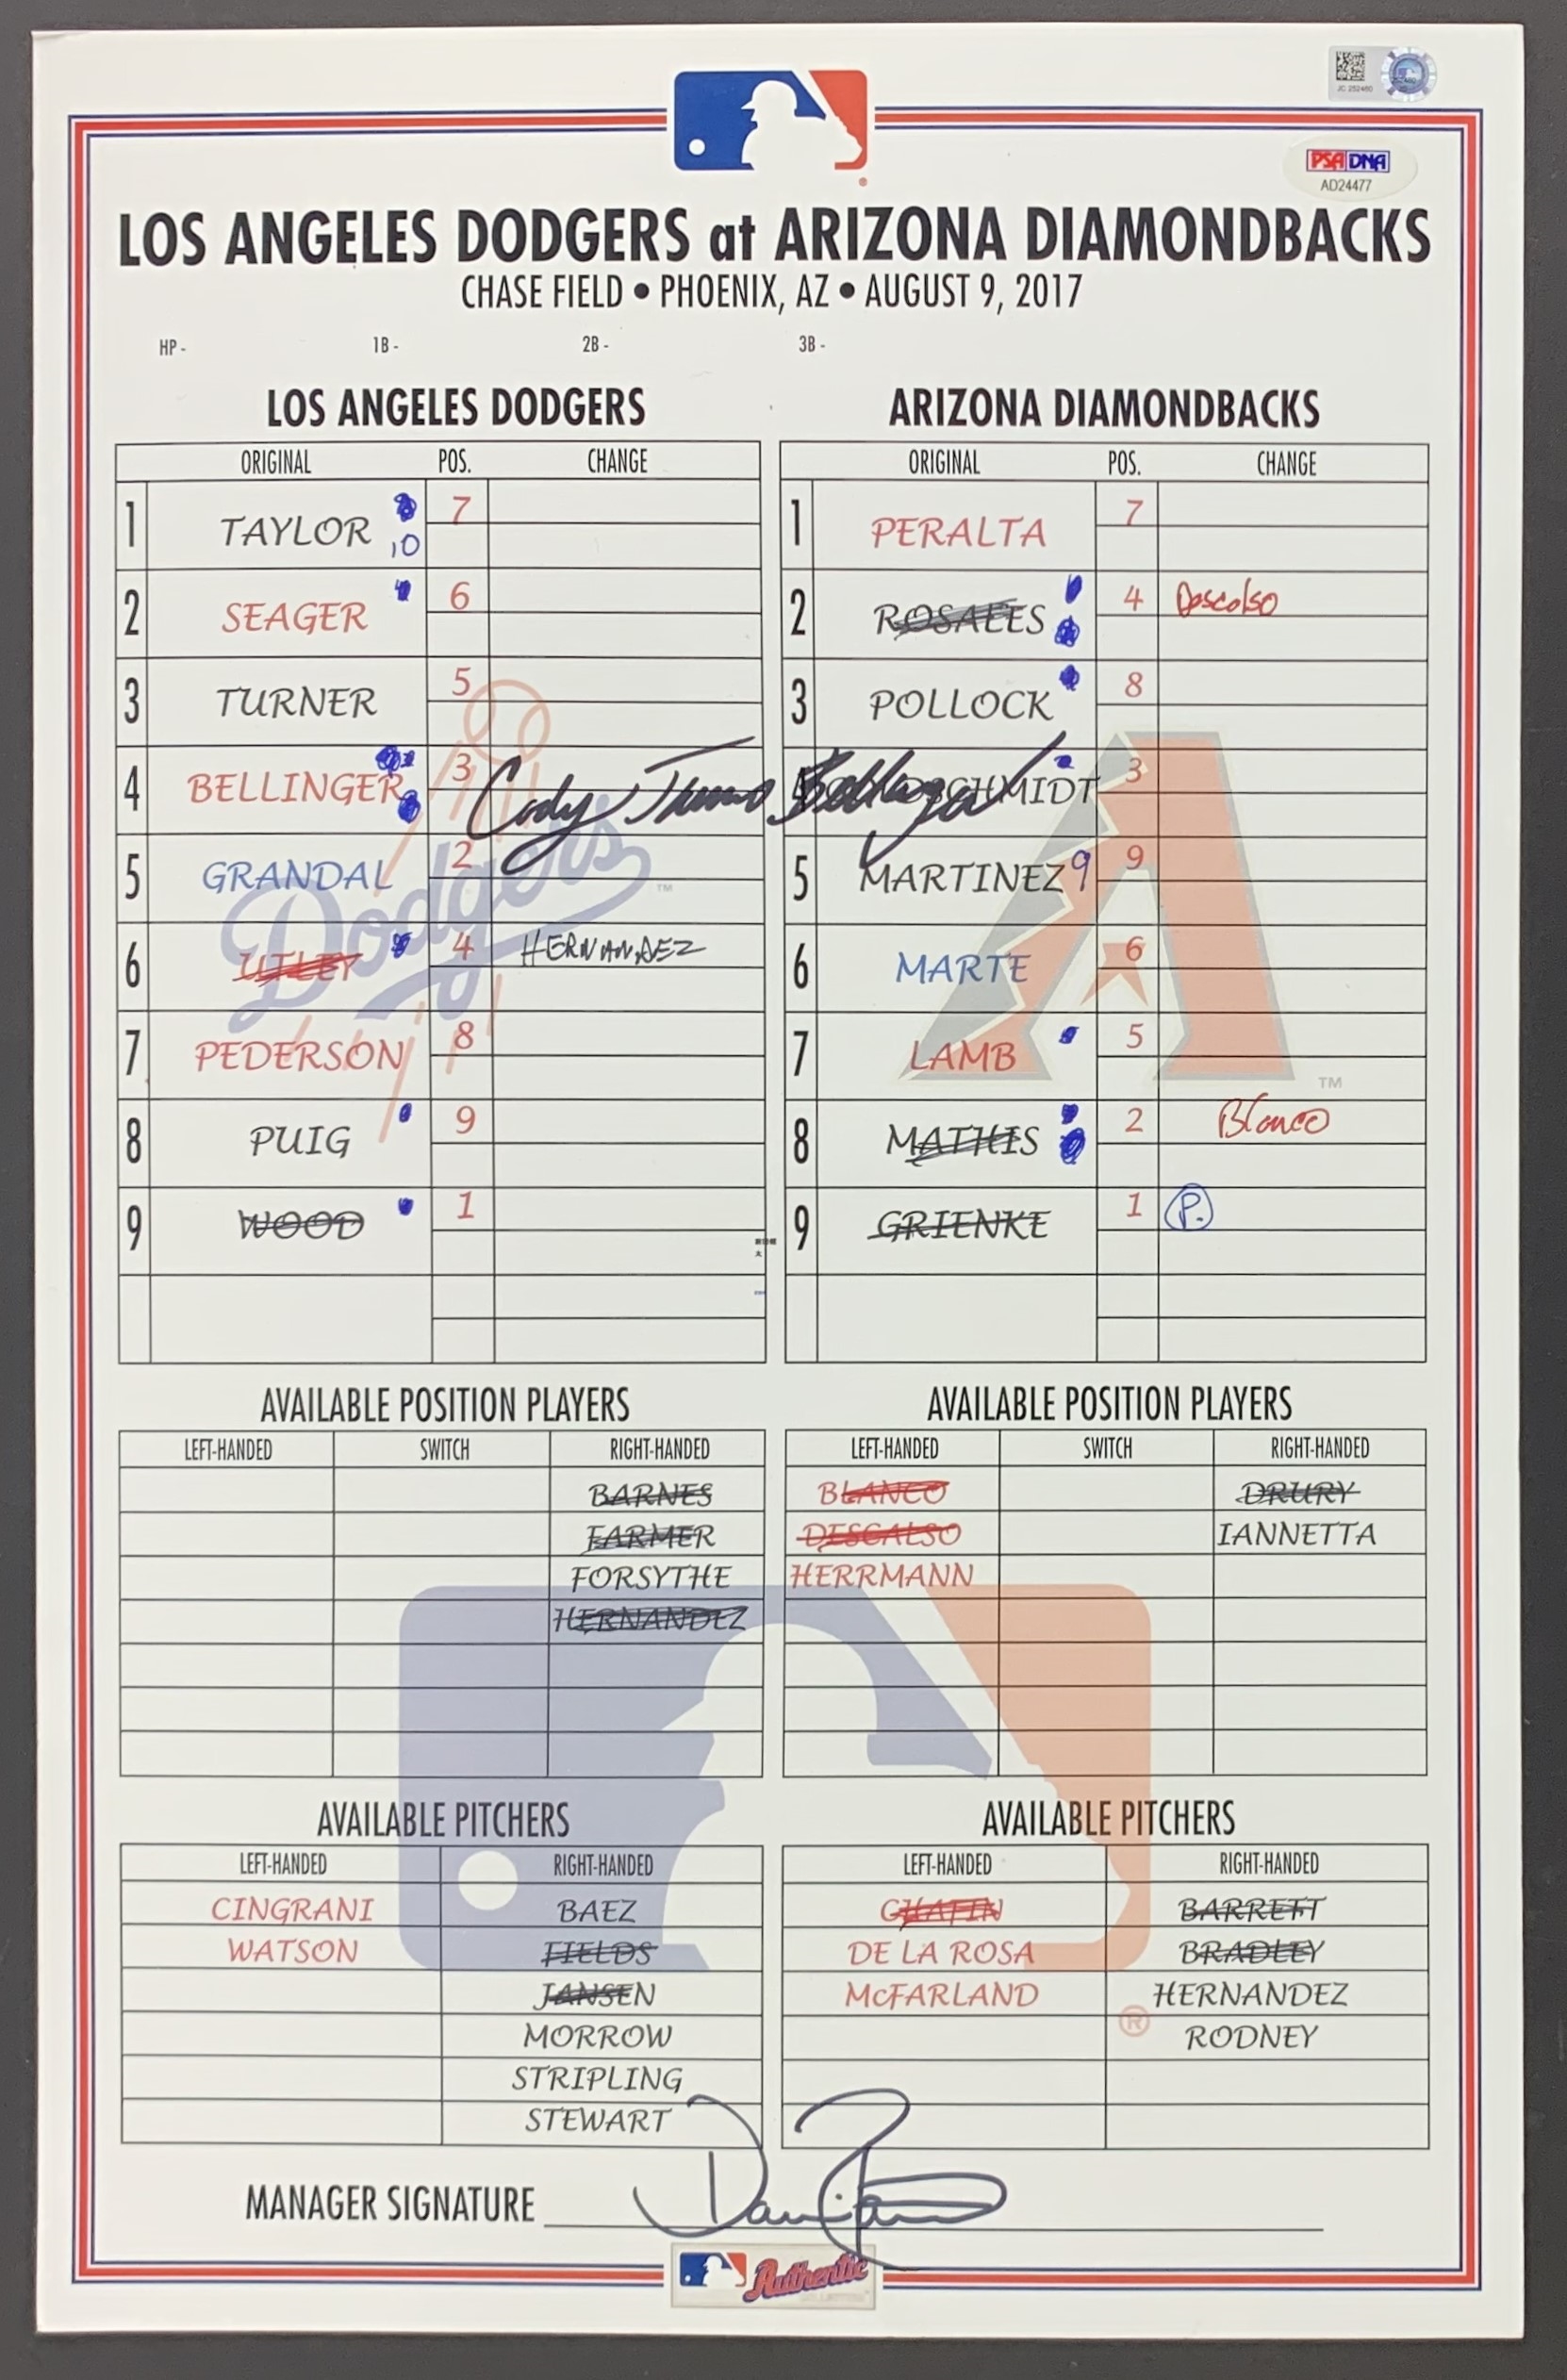 JC 252460
PSA DNA
AD24477
LOS ANGELES DODGERS at ARIZONA DIAMONDBACKS
CHASE FIELD • PHOENIX, AZ • AUGUST 9, 2017
HP - 1B - 2B - 3B -
LOS ANGELES DODGERS
ORIGINAL POS. CHANGE
1 TAYLOR 10 7
2 SEAGER 6
3 TURNER 5
4 BELLINGER 3
Cody James Bellinger
5 GRANDAL 2
6 UTLEY 4 HERNANDEZ
7 PEDERSON 8
8 PUIG 9
9 WOOD 1
Dodgers
TM
ARIZONA DIAMONDBACKS
ORIGINAL POS. CHANGE
1 PERALTA 7
2 ROSALES 4 Descalso
3 POLLOCK 8
4 GOLDSCHMIDT 3
5 MARTINEZ 9 9
6 MARTE 6
7 LAMB 5
8 MATHIS 2 Blanco
9 GRIENKE 1 P.
TM
AVAILABLE POSITION PLAYERS
LEFT-HANDED SWITCH RIGHT-HANDED
BARNES
FARMER
FORSYTHE
HERNANDEZ
AVAILABLE POSITION PLAYERS
LEFT-HANDED SWITCH RIGHT-HANDED
BLANCO DRURY
DESCALSO IANNETTA
HERRMANN
AVAILABLE PITCHERS
LEFT-HANDED RIGHT-HANDED
CINGRANI BAEZ
WATSON FIELDS
JANSEN
MORROW
STRIPLING
STEWART
AVAILABLE PITCHERS
LEFT-HANDED RIGHT-HANDED
CHAFIN BARRETT
DE LA ROSA BRADLEY
McFARLAND HERNANDEZ
RODNEY
®
MANAGER SIGNATURE
Authentic